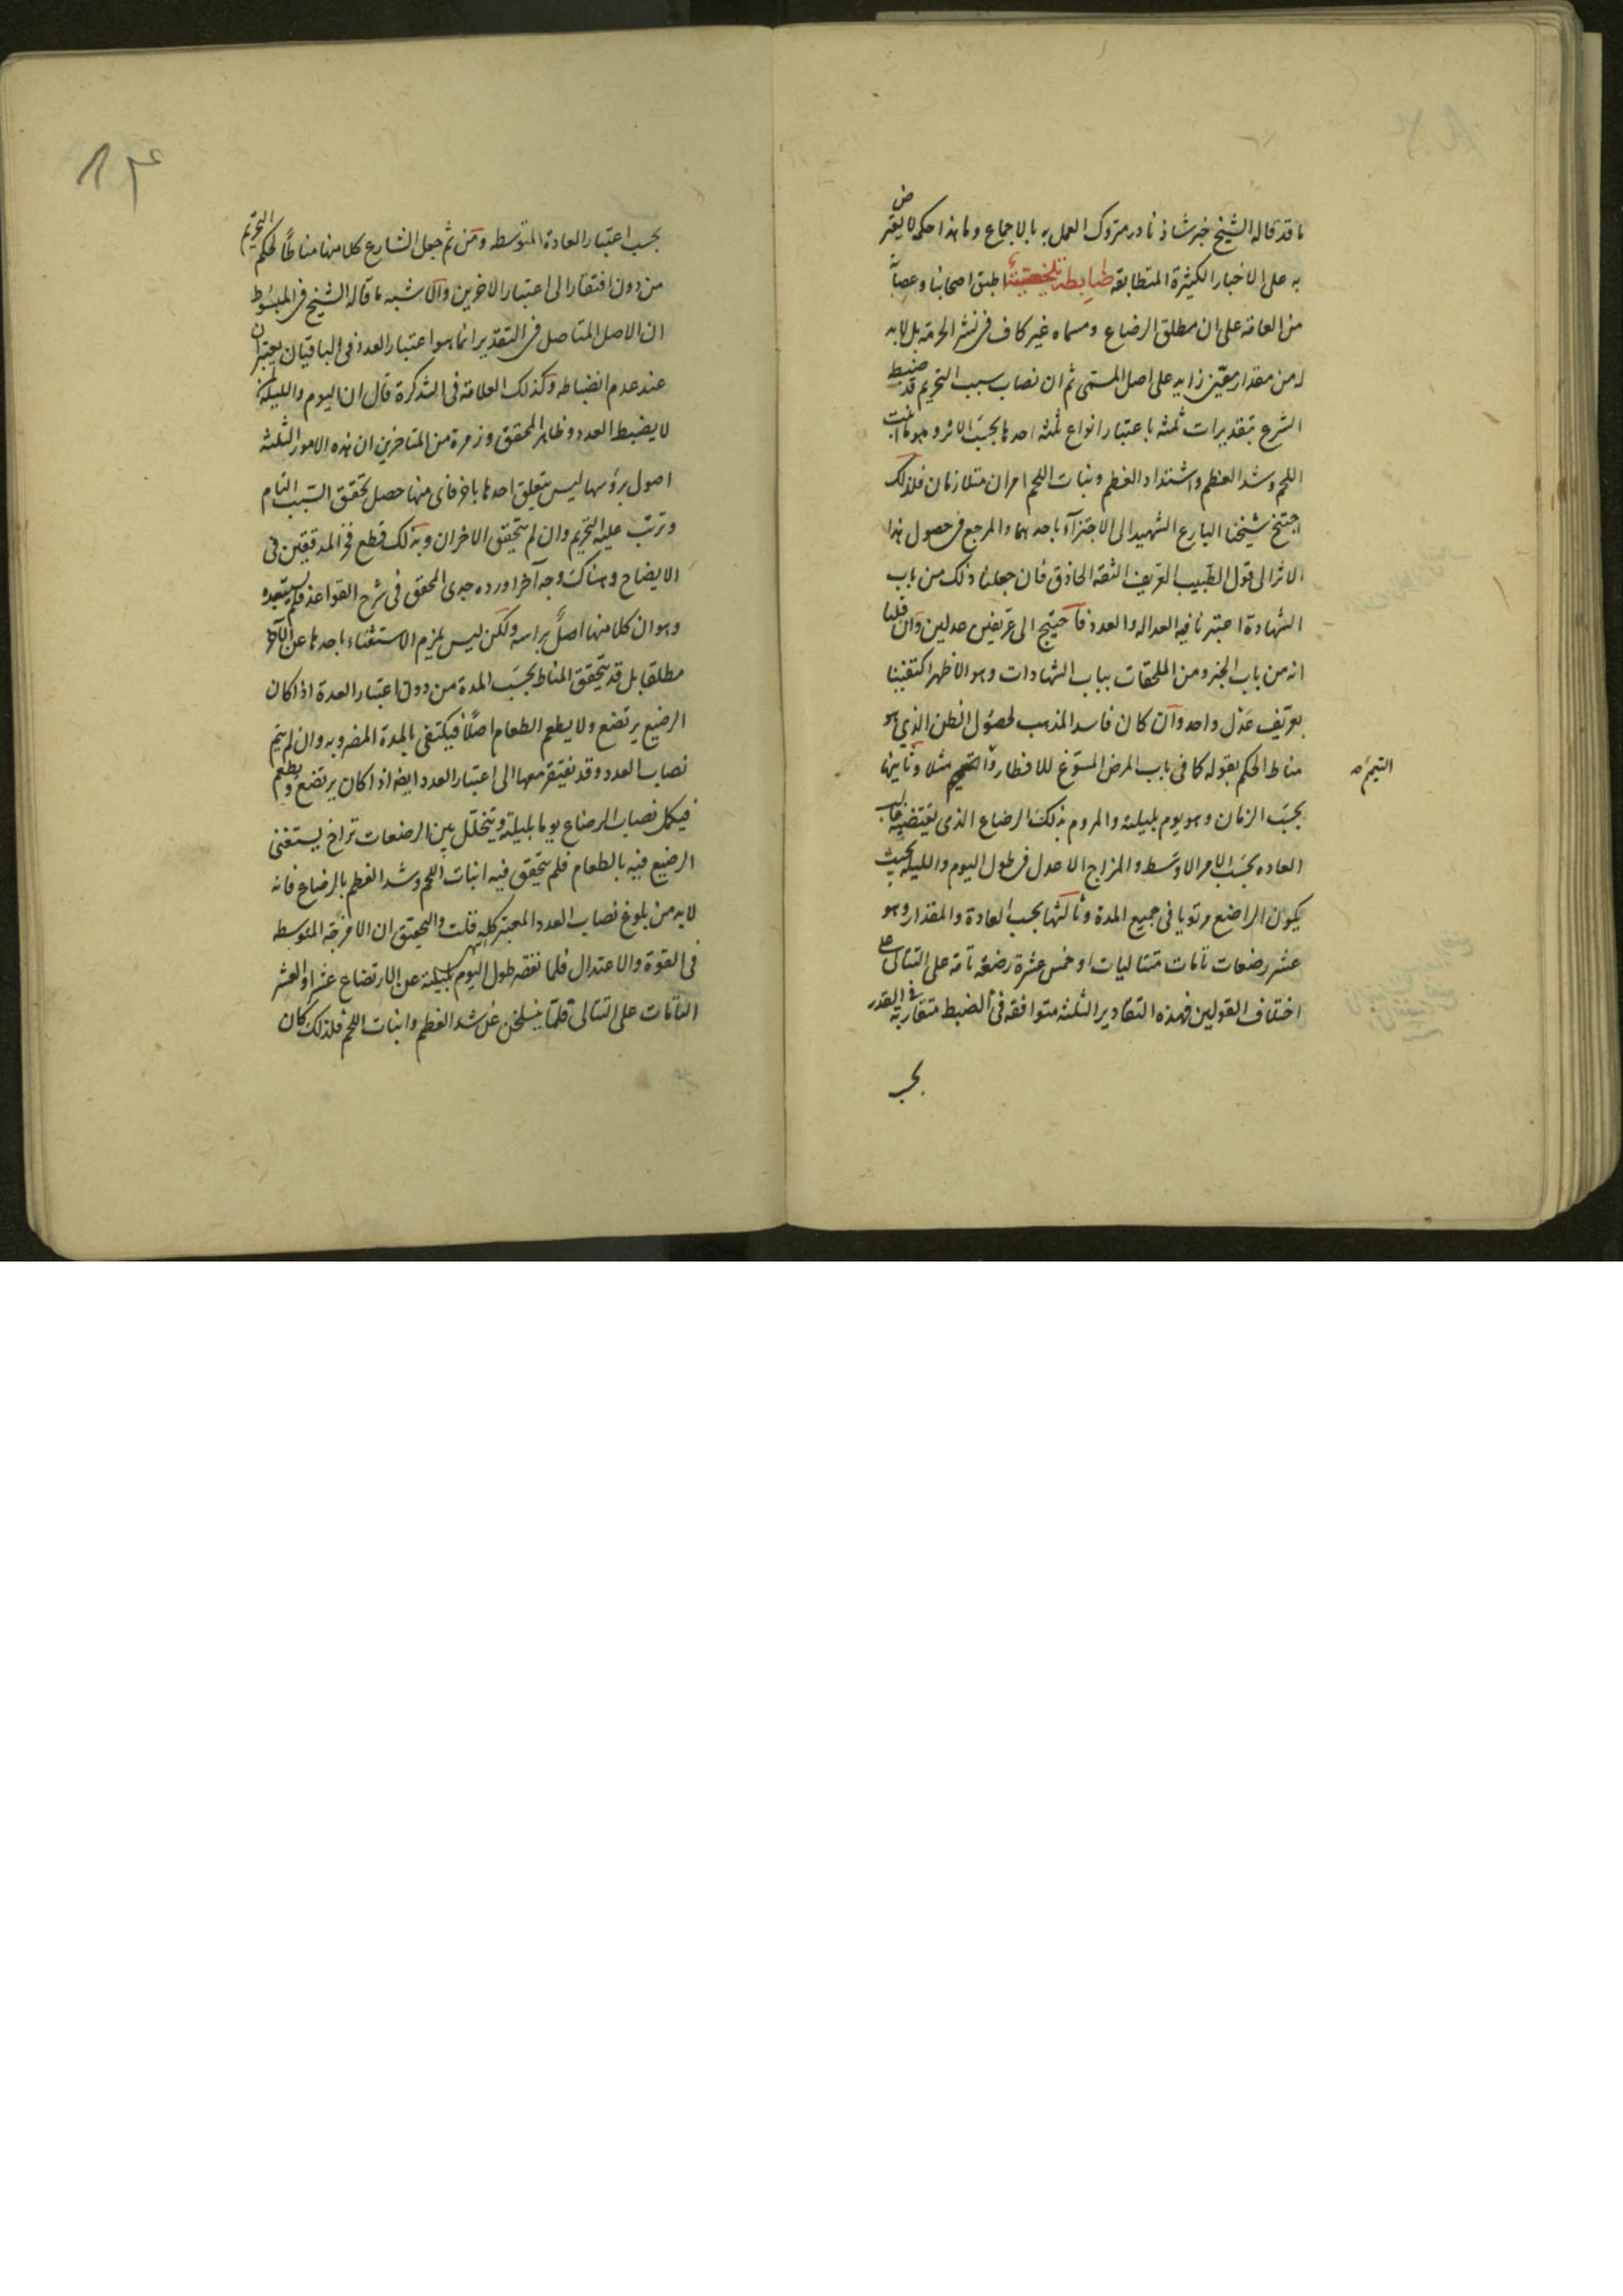 ما قد قاله الشيخ خبر شاذ نادر متروك العمل به بالاجماع وما هذا حكمه لا يعترض
به على الاخبار الكثيرة المتطابقه ضابطة اطبق اصحابنا وعصابة
من العامة على ان مطلق الرضاع ومسماه غير كاف فى نشر الحرمة بل لابد
له من مقدار معين زايد على اصل المسمى ثم ان نصاب سبب التحريم قد ضبط
الشرع بتقديرات ثلثه باعتبار انواع ثلثه احدها بحسب الاثر وهو ما انبت
اللحم وشد العظم واشتداد العظم ونبات اللحم امران متلازمان فلذلك
اجتنح شيخنا البارع الشهيد الى الاجتزاء باحدهما والمرجع فى حصول هذا
الاثر الى قول الطبيب العريف الثقة الحاذق فان جعلنا ذلك من باب
الشهادة اعتبرنا فيه العداله والعدد فاحتيج الى عريفين عدلين وان قلنا
انه من باب الخبر ومن الملحقات بباب الشهادات وهو الاظهر اكتفينا
بعريف عدل واحد وان كان فاسد المذهب لحصول الظن الذي هو
مناط الحكم بقوله كما فى باب المرض المسوغ للافطار والتيمم مثلا وثانيها
التيمم
بحسب الزمان وهو يوم بليلته والمروم بذلك الرضاع الذى يقتضيه
العاده بحسب الامر الاوسط والمزاج الاعدل فى طول اليوم والليله بحيث
يكون الراضع مرتويا فى جميع المدة وثالثها بحسب العادة والمقدار وهو
عشر رضعات تامات متتاليات او خمس عشرة رضعة تامة على التتالى على
اختلاف القولين فهذه التقادير الثلثه متوافقه فى الضبط متقاربة فى القدر
بحسب
٨٤
بحسب اعتبار العادة المتوسطه ومن ثم جعل الشارع كلا منها مناطا لحكم التحريم
من دون افتقار الى اعتبار الاخرين والاشبه ما قاله الشيخ فى المبسوط
ان الاصل المتاصل فى التقدير انما هو اعتبار العدد فى الباقيان يعتبران
عند عدم انضباطه وكذلك العلامة فى التذكرة قال ان اليوم والليلة لمن
لا يضبط العدد وظاهر المحقق وزمرة من المتاخرين ان هذه الامور الثلثه
اصول برؤسها ليس يتعلق احدها باخر فاى منها حصل تحقق السبب التام
وترتب عليه التحريم وان لم يتحقق الاخران وبذلك قطع فخر المدققين فى
الايضاح وهناك وجه آخر اورده جدى المحقق فى شرح القواعد فلم يستبعده
وهو ان كلا منها اصل براسه ولكن ليس يلزم الاستغناء باحدها عن الآخر
مطلقا بل قد يتحقق المناط بحسب المدة من دون اعتبار العدة اذا كان
الرضيع يرتضع ولا يطعم الطعام اصلا فيكتفى بالمدة المضروبه وان لم يتم
نصاب العدد وقد يفتقر معها الى اعتبار العدد ايضا اذا كان يرتضع ويطعم
فيكمل نصاب الرضاع يوما بليلته ويتخلل بين الرضعات تراخ يستغنى
الرضيع فيه بالطعام فلم يتحقق فيه انبات اللحم وشد العظم بالرضاع فانه
لابد من بلوغ نصاب العدد المعتبر قلت والتحقيق ان الامزجة المتوسطه
فى القوة والاعتدال فلما نقصه طول اليوم بليلته عن الارتضاع عشرا والعشر
التامات على التتالى قلما ينسلخن عن شد العظم وانبات اللحم فلذلك كان